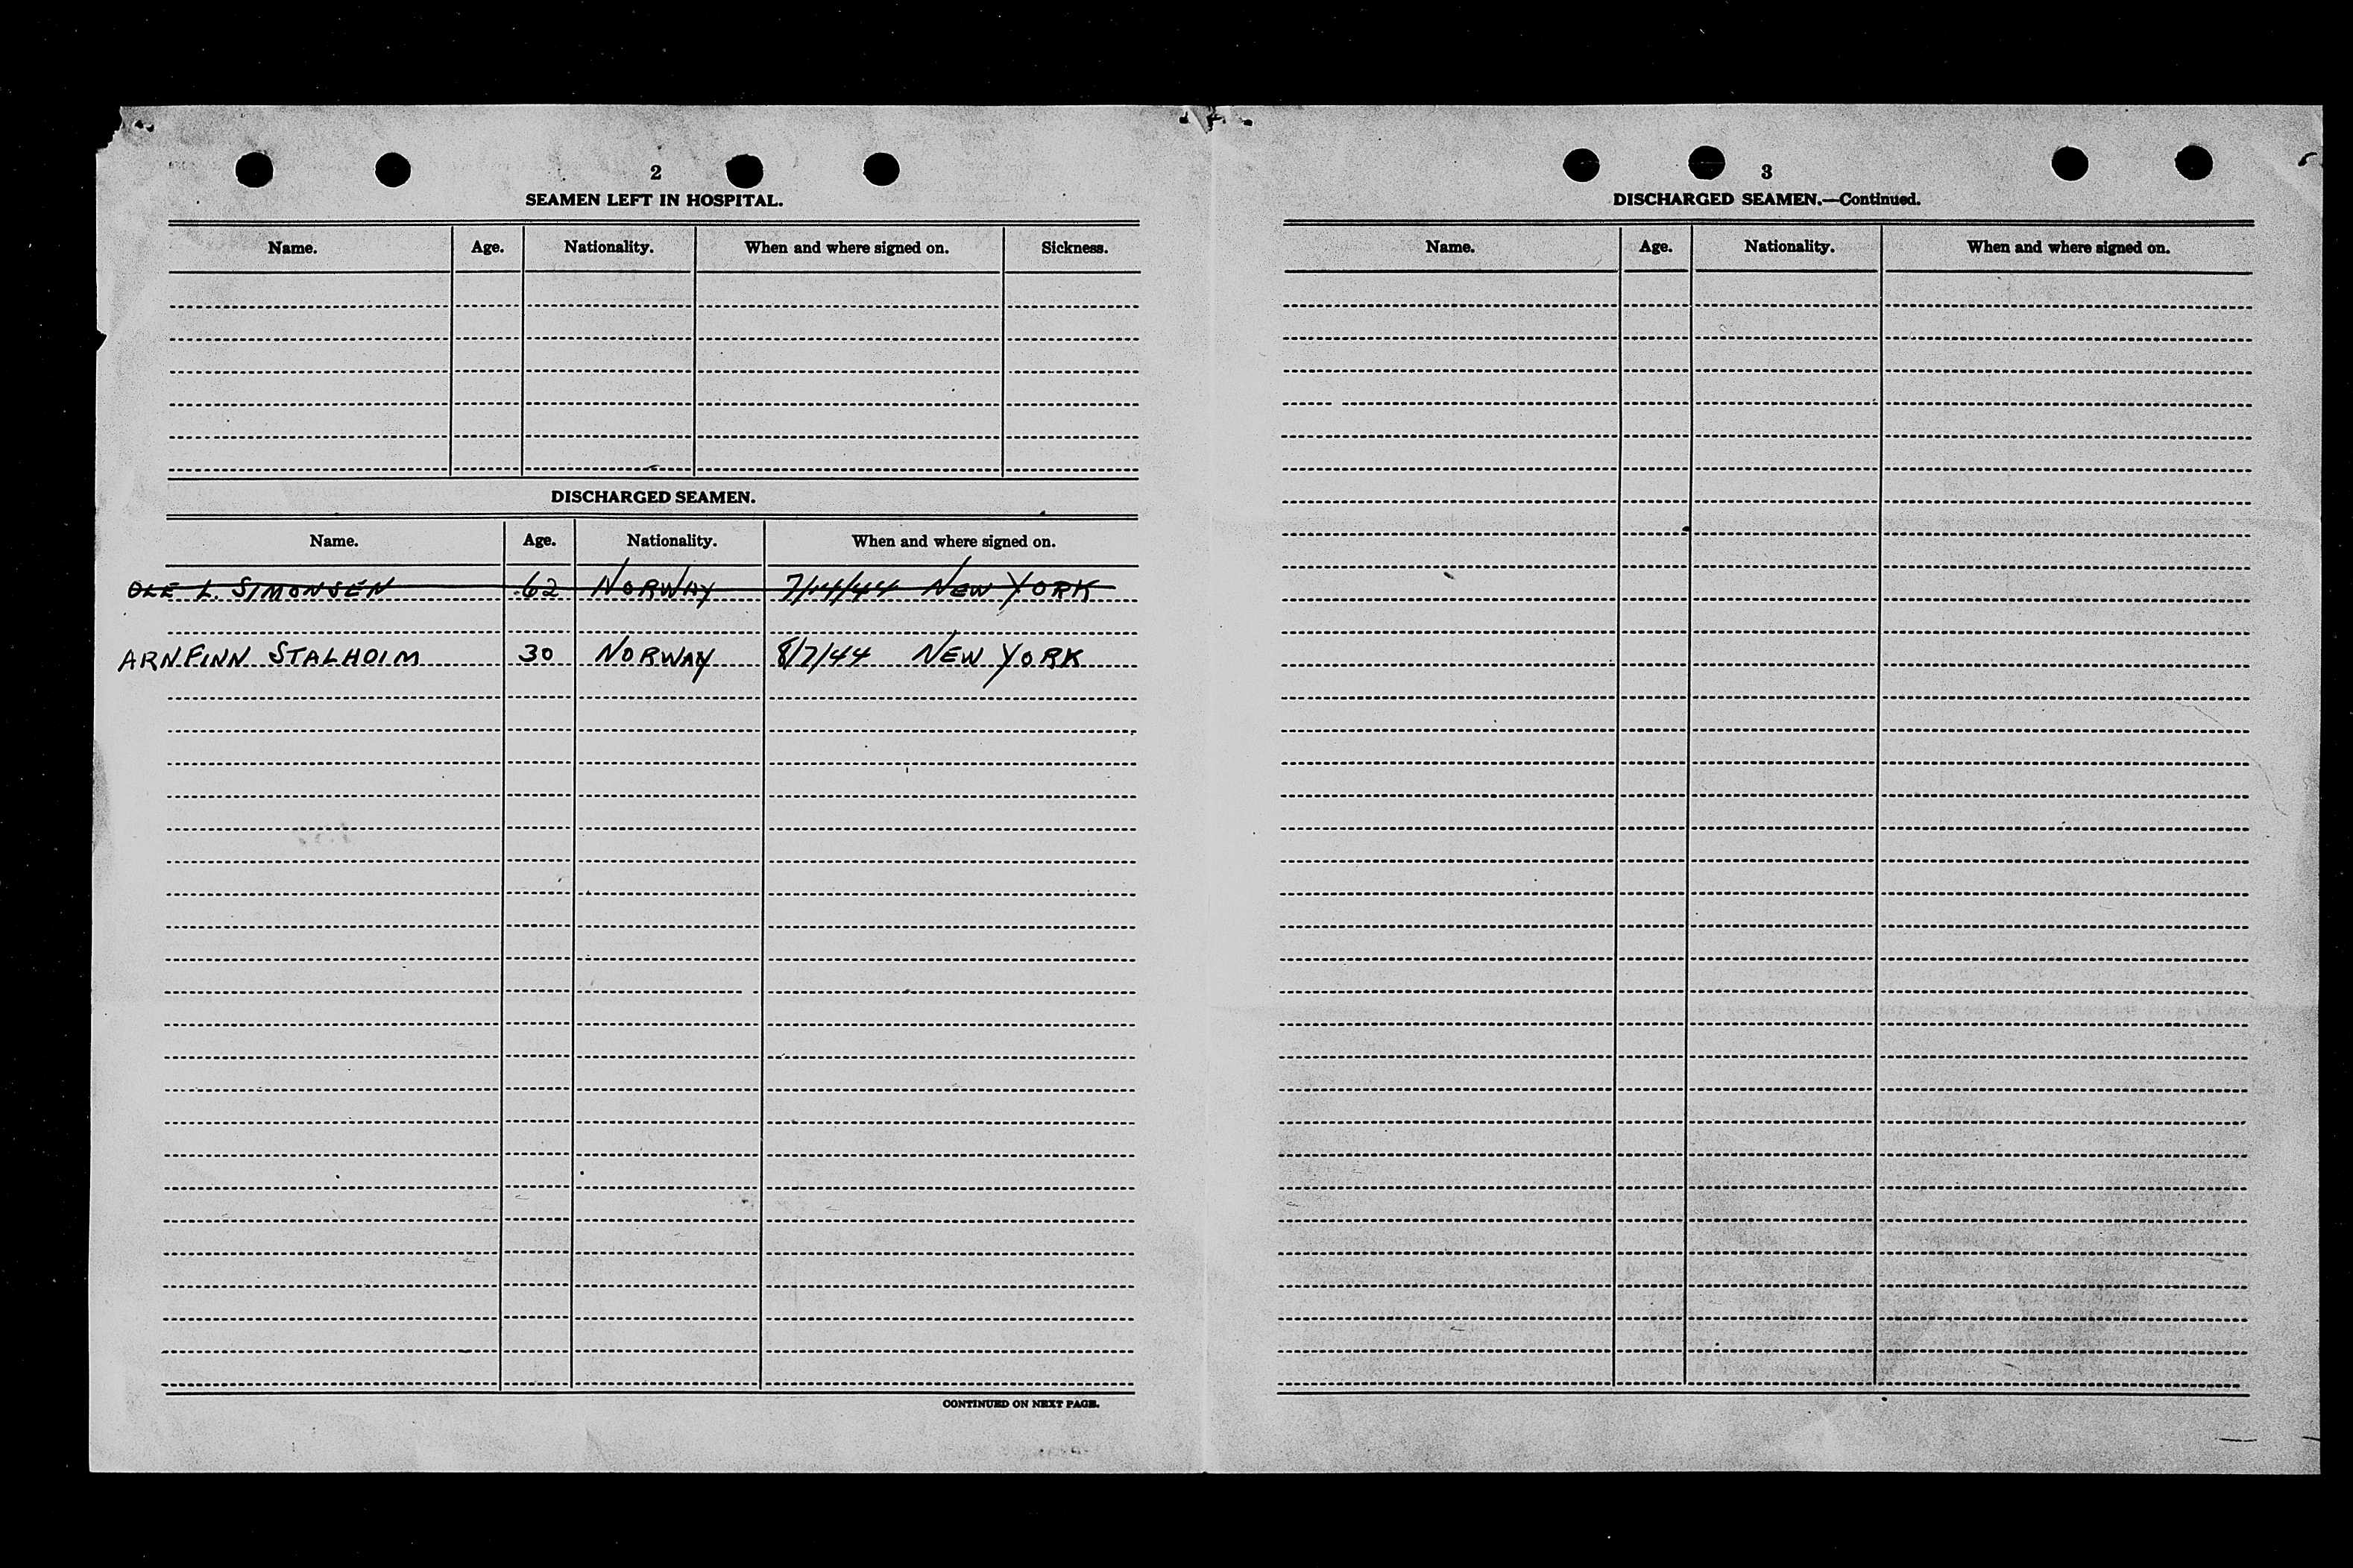 2
SEAMEN LEFT IN HOSPITAL.
Name. Age. Nationality. When and where signed on. Sickness.
DISCHARGED SEAMEN.
Name. Age. Nationality. When and where signed on.
OLE L. SIMONSEN 62 NORWAY 7/14/44 NEW YORK
ARNFINN STALHOIM 30 NORWAY 8/7/44 NEW YORK
CONTINUED ON NEXT PAGE.
3
DISCHARGED SEAMEN.—Continued.
Name. Age. Nationality. When and where signed on.